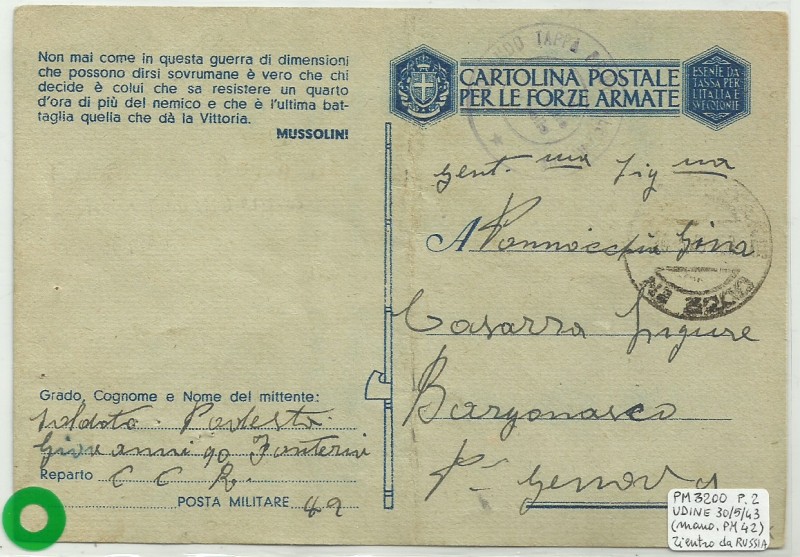 Non mai come in questa guerra di dimensioni
che possono dirsi sovrumane è vero che chi
decide è colui che sa resistere un quarto
d'ora di più del nemico e che è l'ultima bat-
taglia quella che dà la Vittoria.
MUSSOLINI
TAPPA
CARTOLINA POSTALE
PER LE FORZE ARMATE
ESENTE DA
TASSA PER
L'ITALIA E
SVE COLONIE
Gent.ma Sig.na
A Pannocchia Gina
Casarza Ligure
Bargonasco
P. Genova
Nº 3200
Grado, Cognome e Nome del mittente:
Soldato Podestà
Giovanni 90 Fanteria
Reparto C C R.
POSTA MILITARE 42
PM 3200 P. 2
UDINE 30/5/43
(mano. PM 42)
rientro da RUSSIA